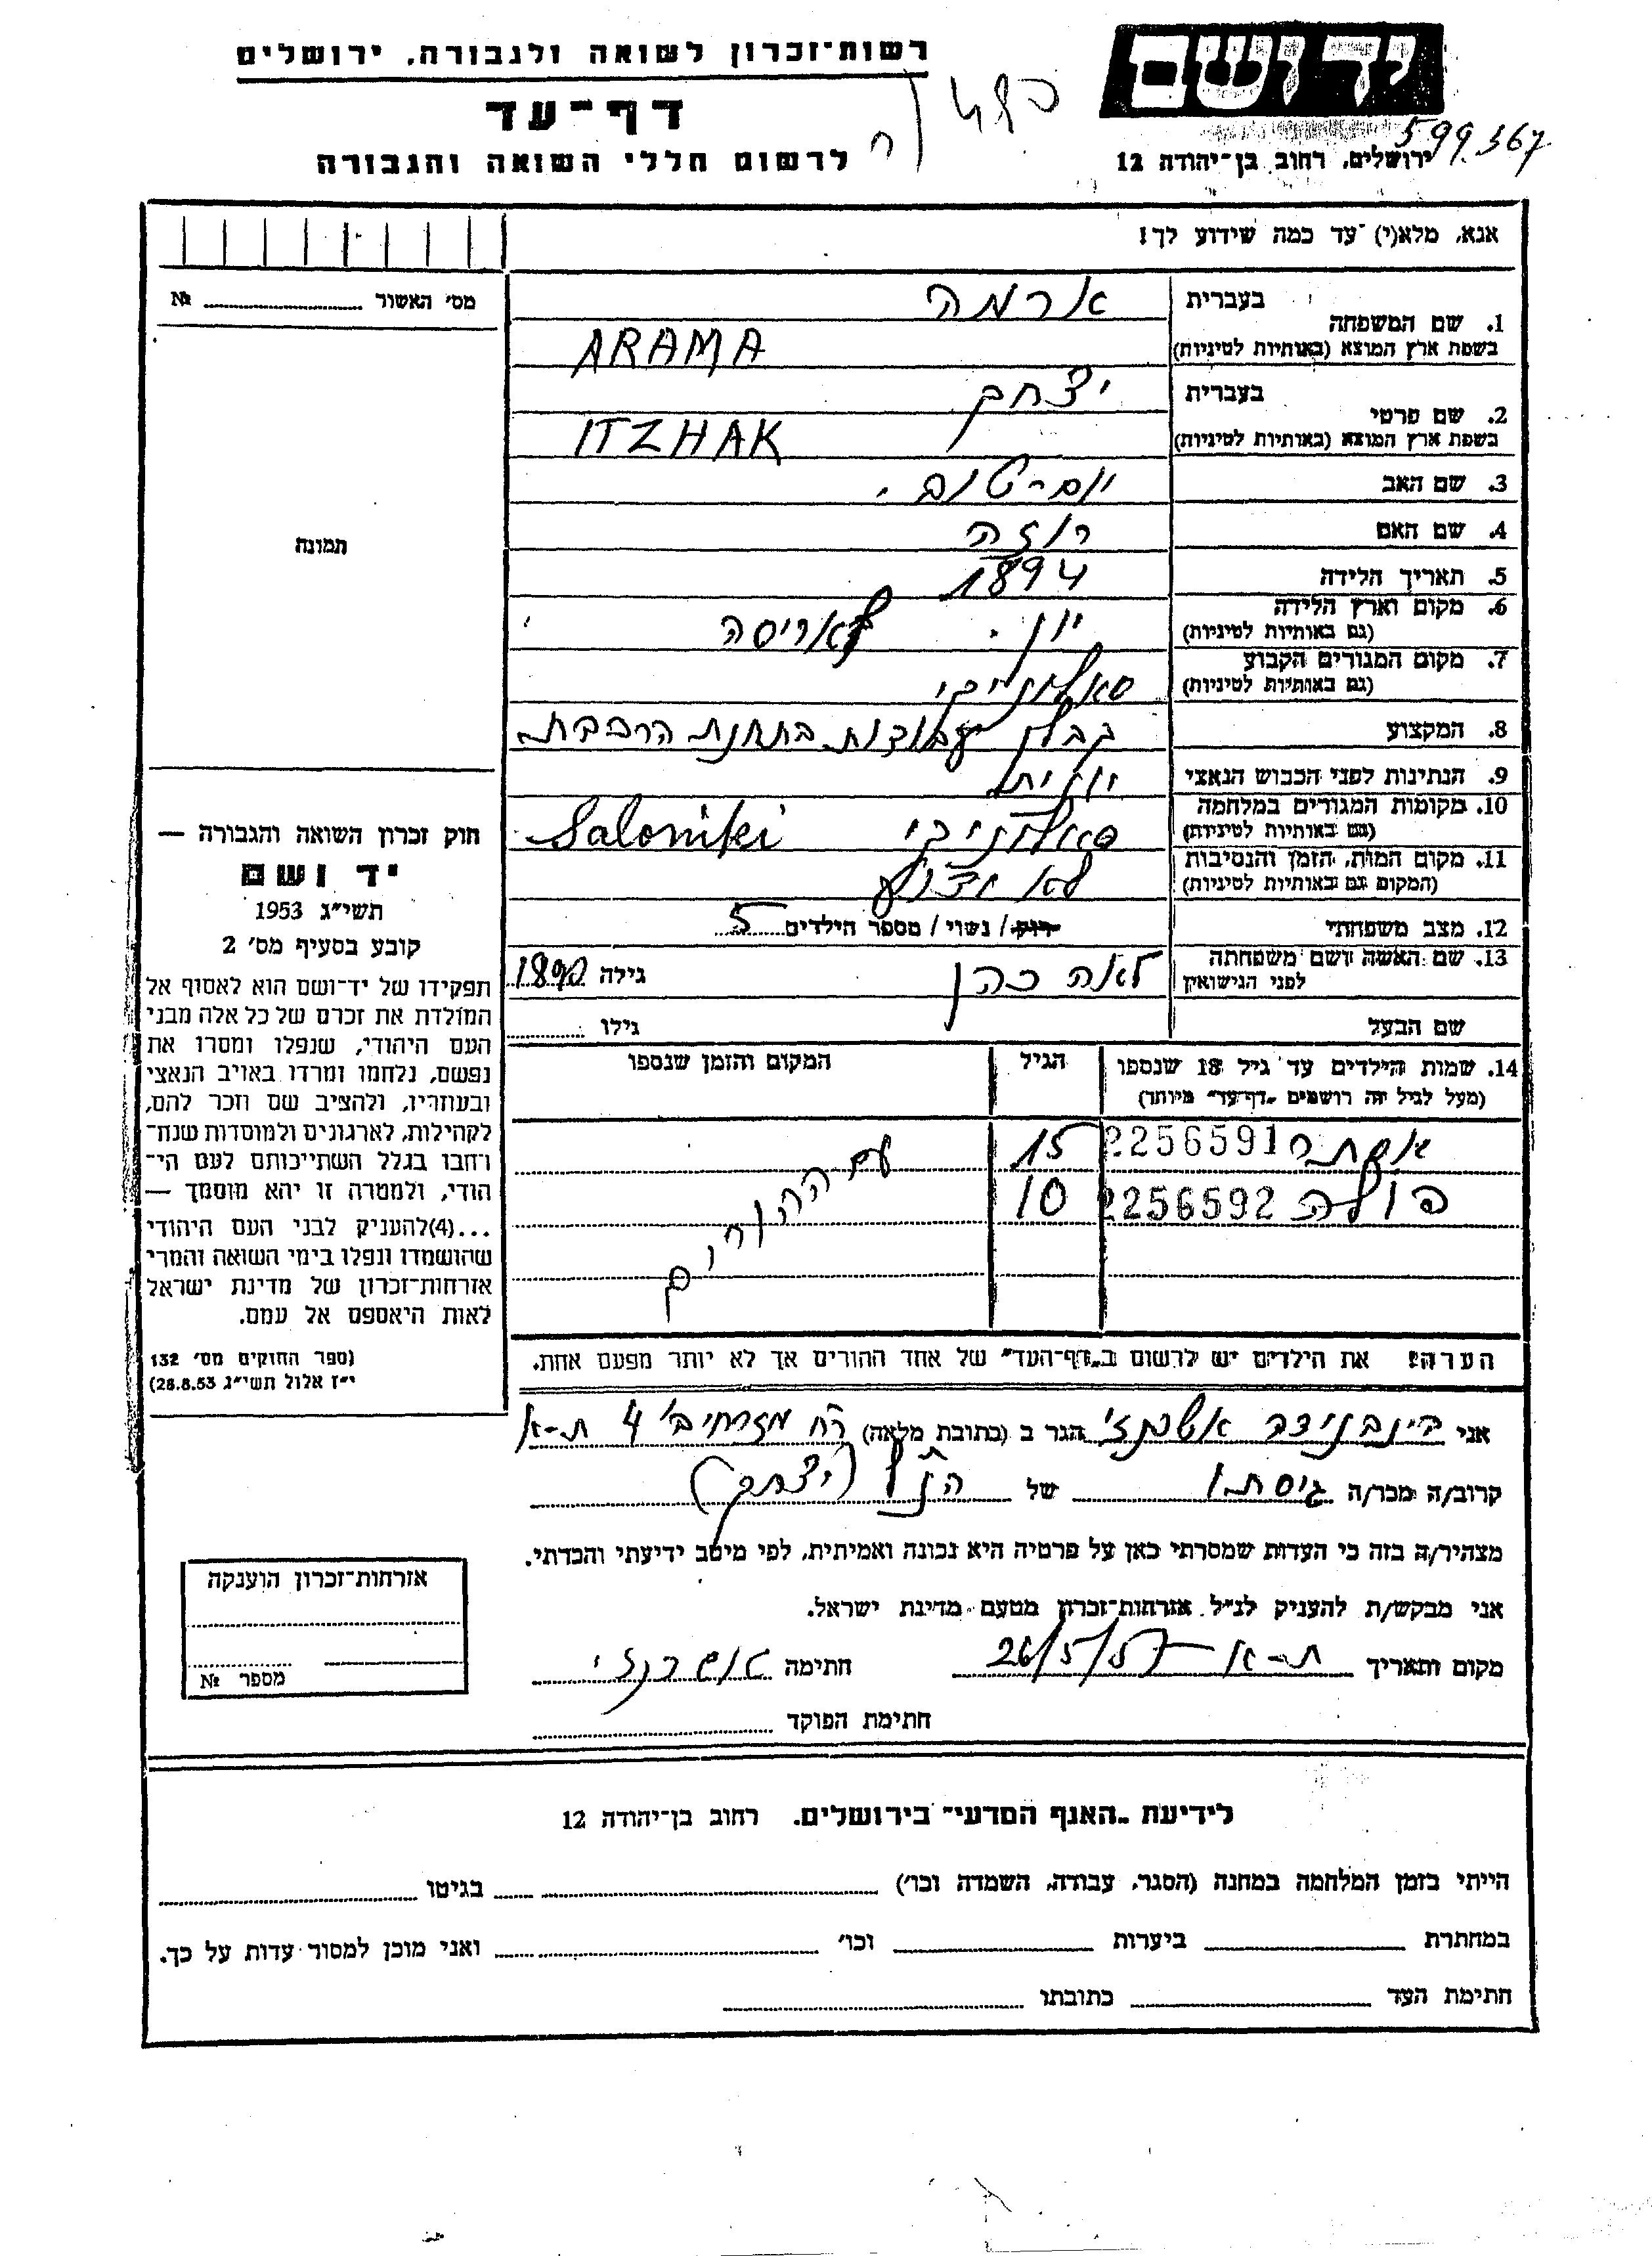 רשות־זכרון לשואה ולגבורה, ירושלים
יד ושם
דף־עד
599367
לרשום חללי השואה והגבורה
ירושלים, רחוב בן־יהודה 12
אנא, מלא(י) עד כמה שידוע לך!
מס' האשור № ........
1. שם המשפחה בעברית ארמה
בשפת ארץ המוצא (באותיות לטיניות) ARAMA
2. שם פרטי בעברית יצחק
בשפת ארץ המוצא (באותיות לטיניות) ITZHAK
3. שם האב יום-טוב
4. שם האם רוזה
תמונה
5. תאריך הלידה 1894
6. מקום וארץ הלידה (גם באותיות לטיניות) יון. לאריסה
7. מקום המגורים הקבוע (גם באותיות לטיניות) סאלוניקי
8. המקצוע קבלן עבודות בתחנת הרכבת
9. הנתינות לפני הכבוש הנאצי יונית
10. מקומות המגורים במלחמה (גם באותיות לטיניות) סאלוניקי Saloniki
11. מקום המות, הזמן והנסיבות (המקום גם באותיות לטיניות) לא ידוע
12. מצב משפחתי רוק / נשוי / מספר הילדים 5
13. שם האשה ושם משפחתה לפני הנישואין לאה כהן גילה 1890
שם הבעל גילו ........
14. שמות הילדים עד גיל 18 שנספו הגיל המקום והזמן שנספו
(מעל לגיל זה רושמים "דף־עד" מיוחד)
אסתר 2256591 15 עם ההורים
פולה 2256592 10
הערה! את הילדים יש לרשום ב"דף־העד" של אחד ההורים אך לא יותר מפעם אחת.
חוק זכרון השואה והגבורה —
יד ושם
תשי"ג 1953
קובע בסעיף מס' 2
תפקידו של יד־ושם הוא לאסוף אל
המולדת את זכרם של כל אלה מבני
העם היהודי, שנפלו ומסרו את
נפשם, נלחמו ומרדו באויב הנאצי
ובעוזריו, ולהציב שם וזכר להם,
לקהילות, לארגונים ולמוסדות שנח־
רחבו בגלל השתייכותם לעם הי־
הודי, ולמטרה זו יהא מוסמך —
...(4)להעניק לבני העם היהודי
שהושמדו ונפלו בימי השואה והמרי
אזרחות־זכרון של מדינת ישראל
לאות היאספם אל עמם.
(ספר החוקים מס' 132
י"ז אלול תשי"ג 28.8.53)
אני בינבנידה אשכנזי הגר ב (כתובת מלאה) רח מזרחי ב' 4 ת-א
קרוב/ה מכר/ה גיסתו של הנ"ל (יצחק)
מצהיר/ה בזה כי העדות שמסרתי כאן על פרטיה היא נכונה ואמיתית, לפי מיטב ידיעתי והכרתי.
אני מבקש/ת להעניק לנ"ל אזרחות־זכרון מטעם מדינת ישראל.
מקום ותאריך ת-א 26/5/57 חתימה אשכנזי
חתימת הפוקד ........
אזרחות־זכרון הוענקה
מספר №
לידיעת "האגף המדעי" בירושלים, רחוב בן־יהודה 12
הייתי בזמן המלחמה במחנה (הסגר, עבודה, השמדה וכו') ........ בגיטו ........
במחתרת ........ ביערות ........ וכו' ........ ואני מוכן למסור עדות על כך.
חתימת העד ........ כתובתו ........